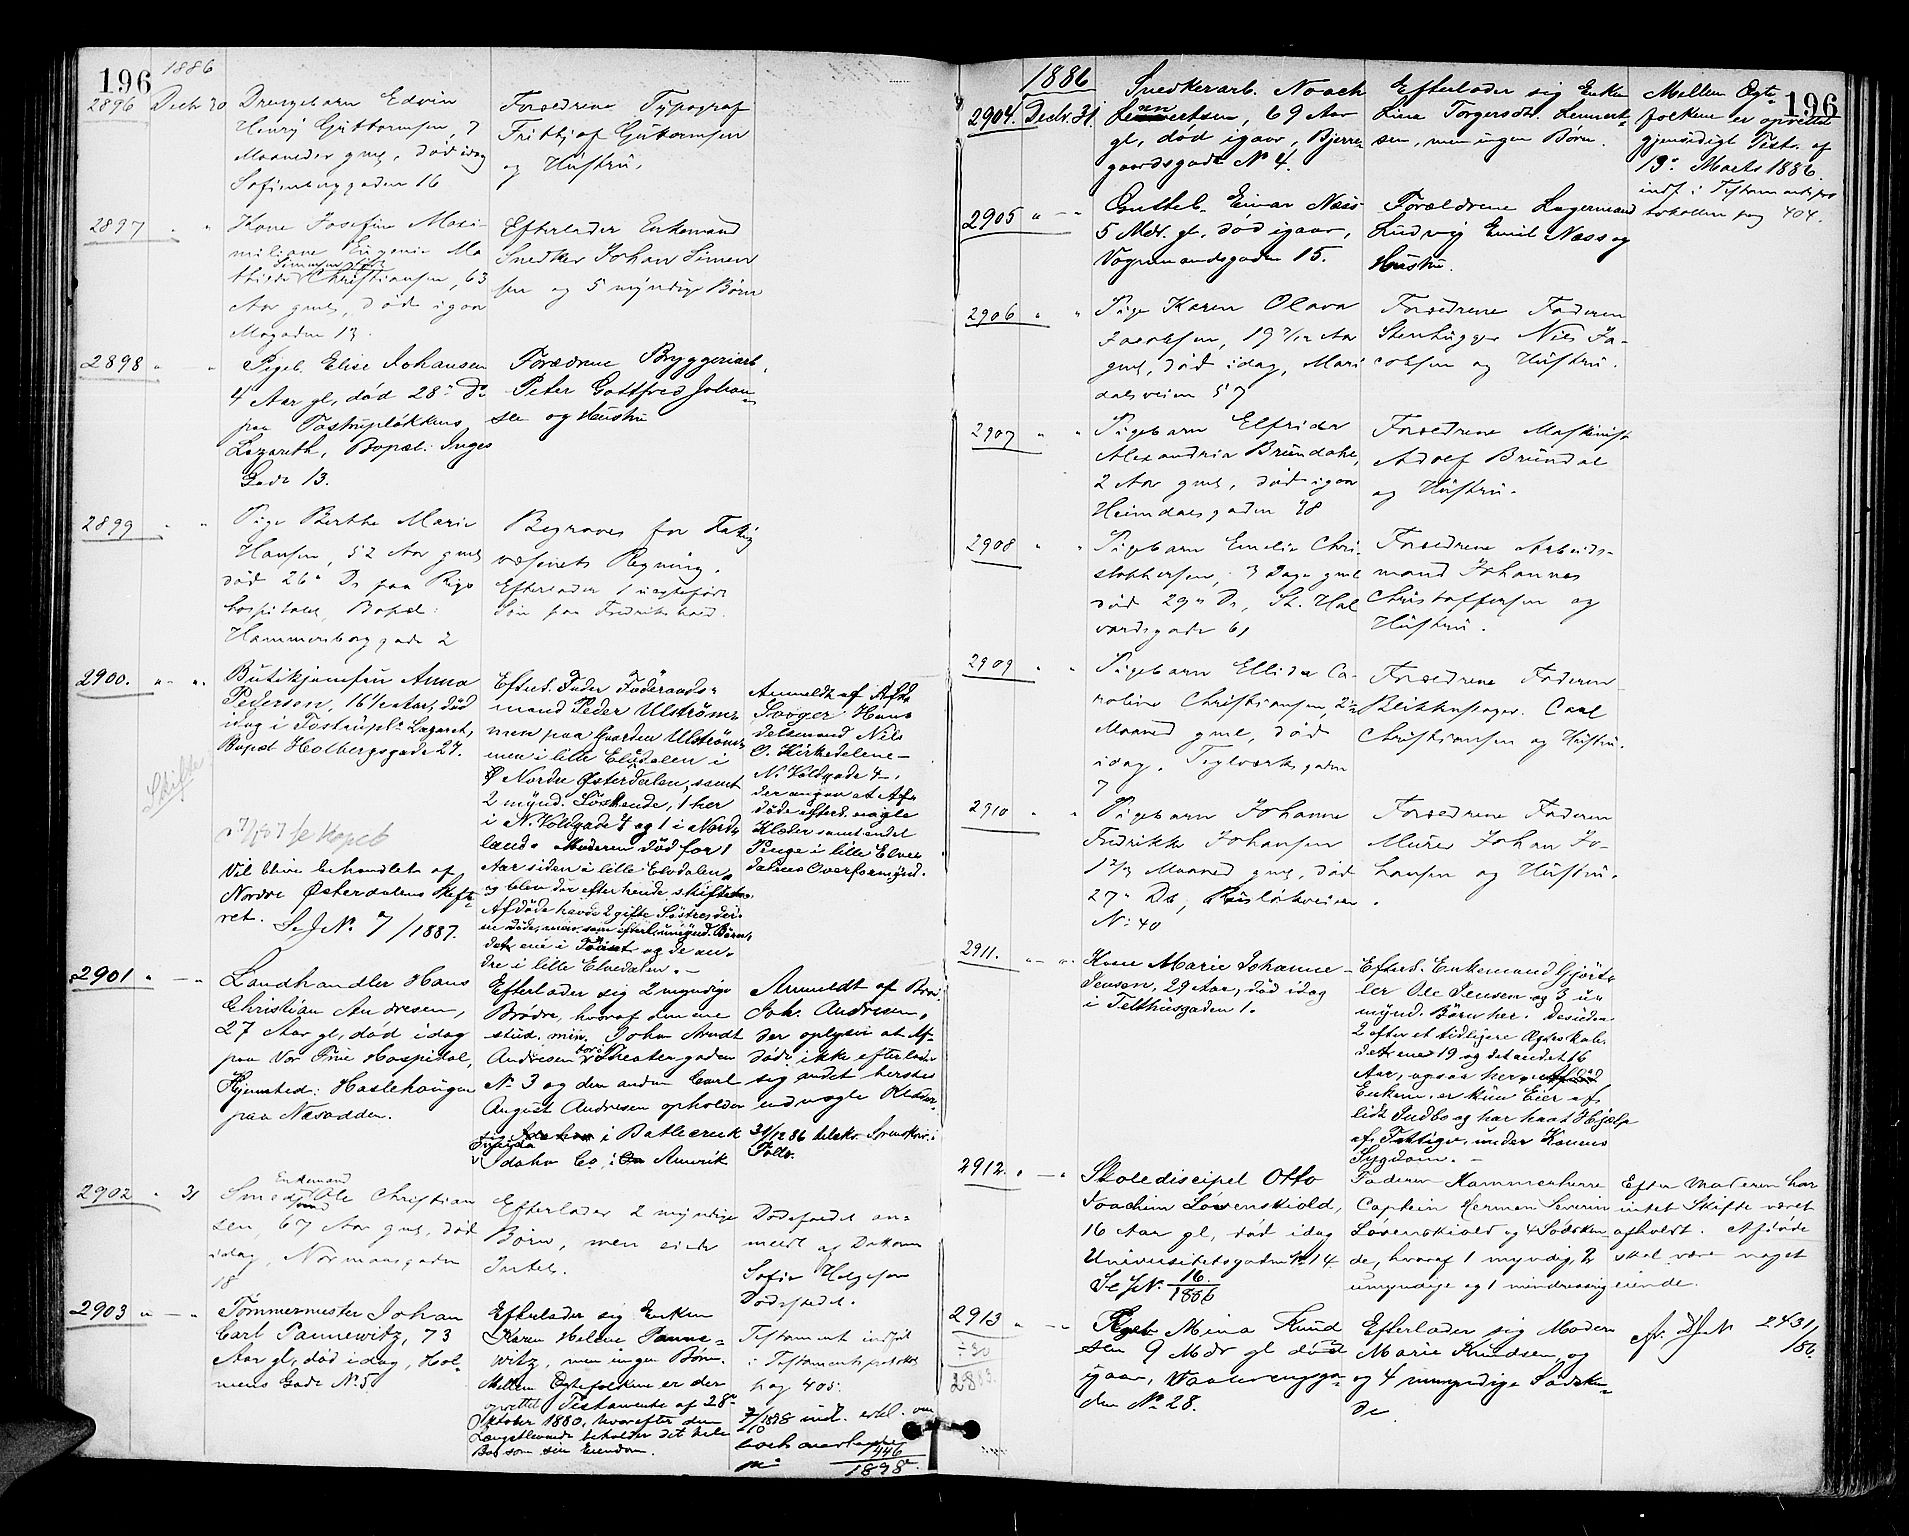 196
1886
2896 Decbr 30
Drengebarn Edvin
Henry Guttormsen, 7
Maaneder gml, død idag
Sofienberggaden 16
Forældrene Typograf
Frithjof Guttormsen
og Hustru.
2897 " "
Kone Josefine Maxi-
miliane Eugenie Ma
thilde Christiansen, 63
Aar gml, død igaar
Møgaden 13.
Efterlader Enkemand
Snedker Johan Simen
sen og 5 myndige Børn
2898 " — "
Pigeb. Elise Johansen
4 Aar gl, død 28de Ds
paa Tostrupløkkens
Lazareth, Bopæl: Inges
Gade 13.
Forældrene Bryggeriarb.
Peter Gottfred Johan-
sen og Hustru
2899 " "
Pige Berthe Marie
Hansen, 52 Aar gml
død 26de Ds paa Rigs
hospitalet, Bopæl:
Hammersborggade 2
Begraves for Fattig
væsenets Regning.
Efterlader 1 uægtefødt
Søn paa Fredrikshald.
2900. " - ".
Butikjomfru Anna
Pedersen, 16 1/2 Aar, død
idag i Tostrupl. Lazaret,
Bopæl Holbergsgade 27.
Skifte
Vil blive behandlet af
Nordre Østerdalens Skifte-
ret. Se J.No. 7/1887.
Efterl. Fader Føderaads-
mand Peder Ulstrøm-
men paa Gaarden Ulstrøm-
men i lille Elvdalen i
Nordre Østerdalen, samt
2 mynd. Søskende, 1 her
i N. Voldgade 4 og 1 i Nord-
land. Moderen død for 1
Aar siden i lille Elvdalen
og blev der efter hende skiftet.
Afdøde havde 2 gifte Søstre der
ere døde, men som efterl. umynd. Børn,
det ene i Tönset og de an-
dre i lille Elvedalen. —
Anmeldt af Afdø.
Svoger Han-
delsmand Nils
O. Kirkedelene-
N. Voldgade 4-,
der angav at Af-
døde efterl. nogle
Klæder samt endel
Penge i lille Elve
dalens Overformynd.
2901 " — "
Landhandler Hans
Christian Andresen,
27 Aar gl, død idag
paa Vor Frue Hospital,
Hjemsted: Haslehaugen
paa Næsodden.
Efterlader sig 2 myndige
Brødre, hvoraf den ene
stud. min. John Arndt
Andresen bor i Theatergaden
No 3 og den anden Carl
August Andresen opholder
sig i Batlecreek
Idaho Co. i Amerik
Anmeldt af Bro.
Joh. Andresen,
der oplyser at Af-
døde ikke efterlader
sig andet herskes
end nogle Klæder.
31/12 86 telskr. Sorenskriv. i
Follo.
2902 " 31
Enkemand
Smed Ole Christian
sen, 67 Aar gml, død
idag, Normansgaden
18
Efterlader 2 myndige
Børn, men eier
Intet.
Dødsfaldet an-
meldt af Datteren
Sofie Helgesen
Dødsstedet.
2903 " — "
Tømmermester Johan
Carl Pannewitz, 73
Aar gl, død idag, Hol-
mens Gade No 5
Efterlader sig Enken
Karen Helene Panne-
witz, men ingen Børn.
Mellem Ægtefolkene er der
oprettet Testamente af 28de
Oktober 1880, hvorefter den
Længstlevende beholder det hele
Bo som sin Eiendom.
Testament indført
i Testamentsprotokol
pag 405.
1898 indl. erkl. om
1446/1898
196
1886
2904. Decbr. 31
Snedkerarb. Noach
Lennertsen, 69 Aar
gl, død igaar, Bjerre
gaardsgade No 4.
Efterlader sig Enken
Line Torgersdtr. Lennert-
sen, men ingen Børn.
Mellem Ægte-
folkene er oprettet
gjensidigt Test. af
19de Marts 1886
indf. i Testamentspro
tokollen pag 404.
2905 " - -
Gutteb. Einar Næss
5 Mdr. gl, død igaar,
Vognmandsgaden 15.
Forældrene Lagermand
Ludvig Emil Næss og
Hustru.
2906 " "
Pige Karen Olava
Jacobsen, 19 7/12 Aar
gml, død idag, Mari
dalsveien 57
Forældrene Faderen
Stenhugger Nils Ja-
cobsen og Hustru.
2907 " "
Pigebarn Elfrider
Alexandria Brundahl,
2 Aar gml, død igaar
Heimdalsgaden 38
Forældrene Maskinist
Adolf Brundal
og Hustru.
2908 " "
Pigebarn Emelie Chri-
stophersen, 3 Dage gml
død 29de Ds, St. Hal
vardsgade 61
Forældrene Arbeids-
mand Johannes
Christoffersen og
Hustru.
2909 " "
Pigebarn Ellida Ca-
roline Christiansen, 2
Maaned gml, død
idag, Teglværksgaden
7
Forældrene Faderen
Blikkenslager. Carl
Christiansen og Hustru.
2910 " "
Pigebarn Johanne
Fredrikke Johansen
1 2/3 Maaned gml, død
27de Ds, Riisløkveien
No 40
Forældrene Faderen
Murer Johan Jo-
hansen og Hustru.
2911. " - ".
Kone Marie Johanne
Jensen, 29 Aar, død idag
i Telthusgaden 1.
Efterl. Enkemand Gjørt-
ler Ole Jensen og 3 u-
mynd. Børn her. Desuden
2 efter et tidligere Ægteskab,
det ene 19 og det andet 16
Aar, ogsaa her.
Enkem. er kun Eier af
lidt Indbo og har havt Hjælp
af Fattigv. under Konens
Sygdom. —
2912. " — "
Skolediscipel Otto
Joachim Løvenskiold,
16 Aar gl, død idag
Universitetsgaden No 14
Se J.No. 16/1886
Faderen Kammerherre
Captein Herman Severin
Løvenskiold og 4 Sødsken
de, hvoraf 1 myndig, 2
umyndige og 1 mindreaarig
Efter Moderen har
intet Skifte været
afholdt. Afdøde
skal være noget
eiende.
2913 " — "
÷30
2883
Pigeb. Mina Knud
sen 9 Mdr gl død
igaar, Vaalerengga-
den No 28.
Efterlader sig Moderen
Marie Knudsen og
og 4 umyndige Sødsken-
de
2431/86.